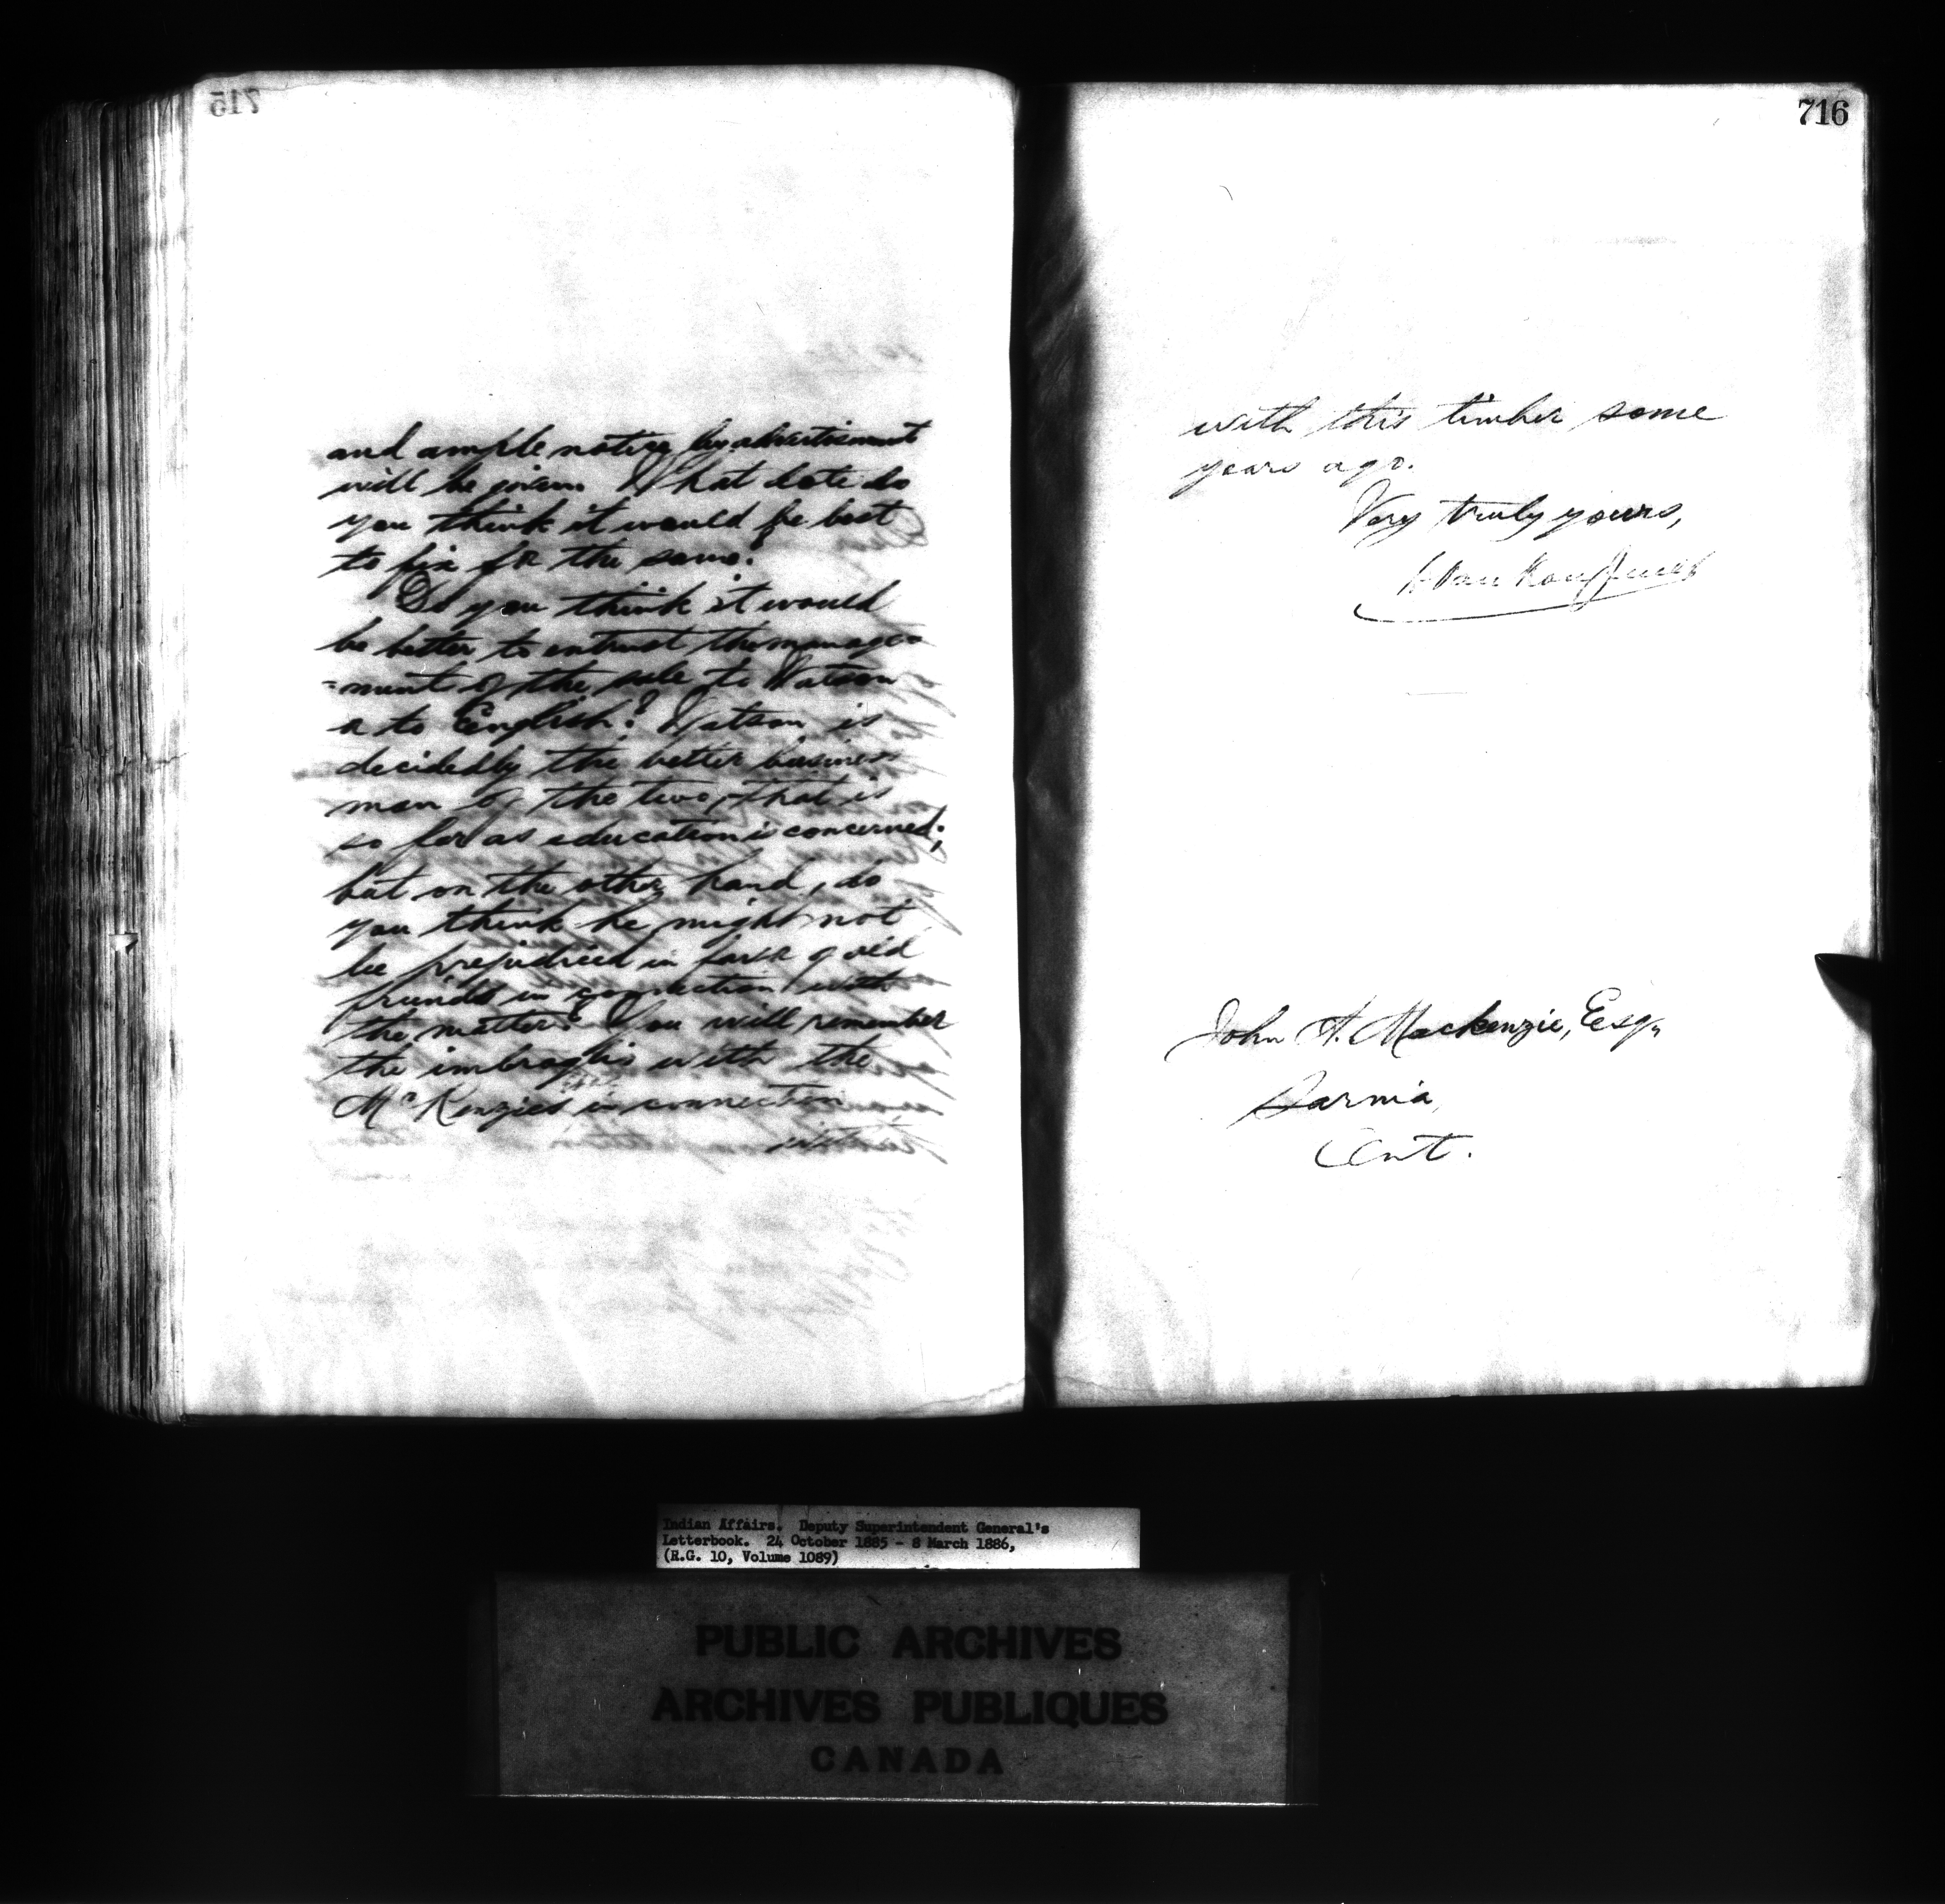 715
and ample notice by advertisment
will be given. What date do
you think it would be best
to fix for the same?
Do you think it would
be better to entrust the manage-
-ment of the sale to Watson
or to English? Watson is
decidedly the better business
man of the two, that is
so far as education is concerned;
but on the other hand, do
you think he might not
be prejudiced in favor of old
friends in connection with
the matter? You will remember
the imbroglio with the
McKenzies in connection
with
716
with this timber some
years ago.
Very truly yours,
John A. Mackenzie, Esq.,
Sarnia,
Ont.
Indian Affairs. Deputy Superintendent General's
Letterbook. 24 October 1885 - 8 March 1886,
(R.G. 10, Volume 1089)
PUBLIC ARCHIVES
ARCHIVES PUBLIQUES
CANADA